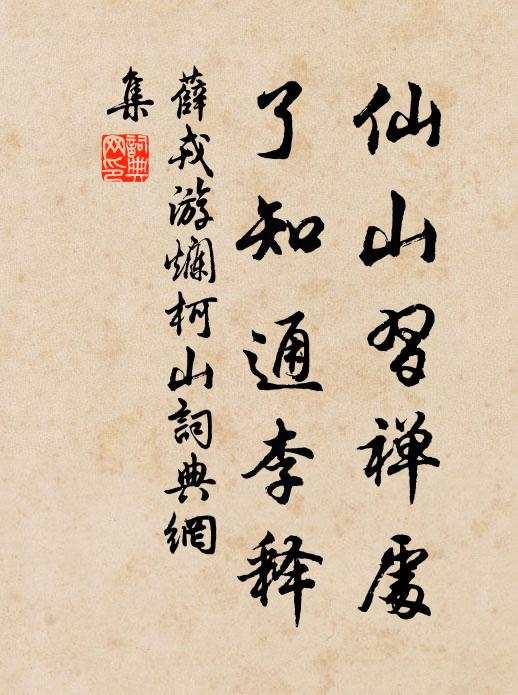 仙山習禅處
了知通李释
薛戎游爛柯山詞典網
集
詞典
网印